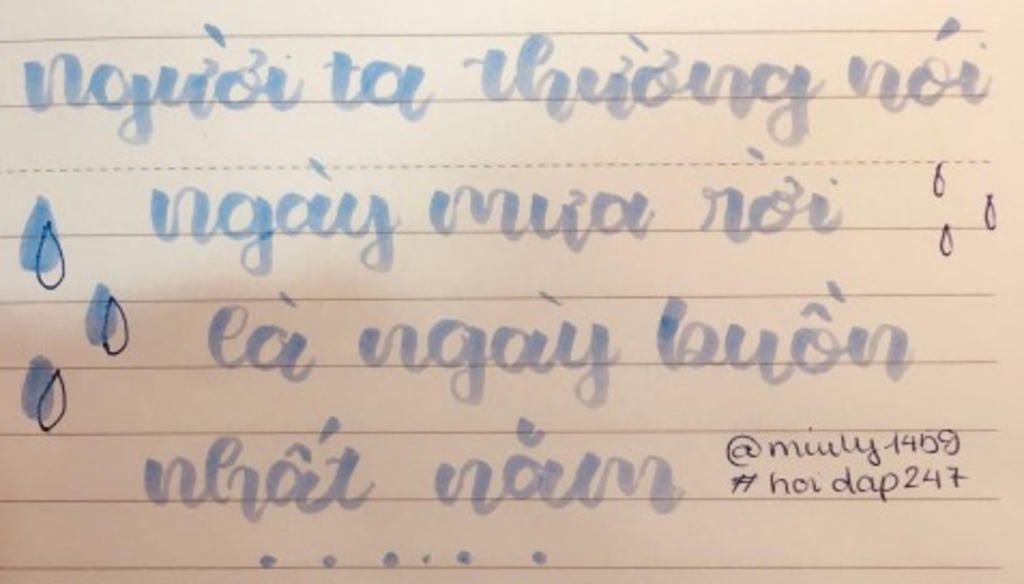 người ta thường nói
ngày mưa rơi
là ngày buồn
nhất năm
.....
@miuly1459
#hoidap247